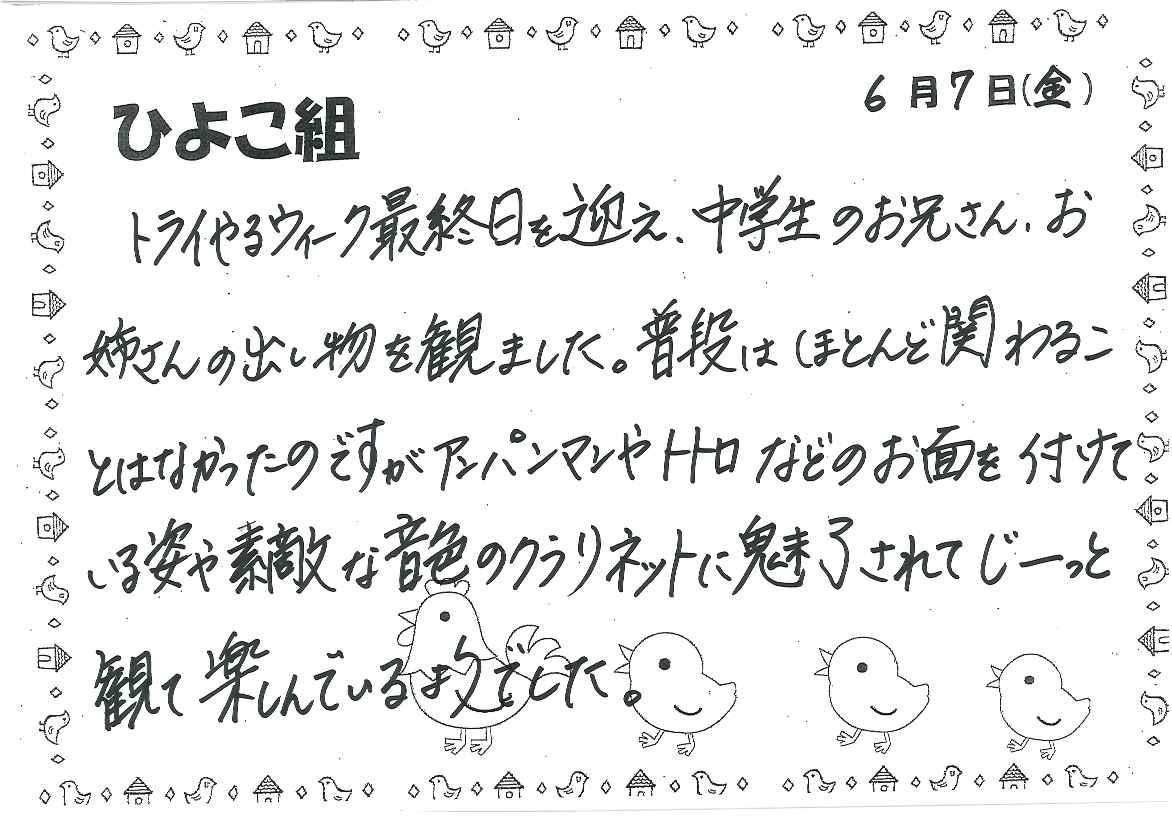 6月7日(金)
ひよこ組
トライやるウィーク最終日を迎え、中学生のお兄さん、お
姉さんの出し物を観ました。普段はほとんど関わるこ
とはなかったのですがアンパンマンやトトロなどのお面を付けて
いる姿や素敵な音色のクラリネットに魅了されてじーっと
観て楽しんでいる様子でした。